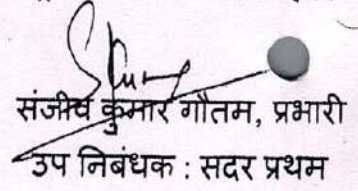 संजीव कुमार गौतम, प्रभारी
उप निबंधक : सदर प्रथम